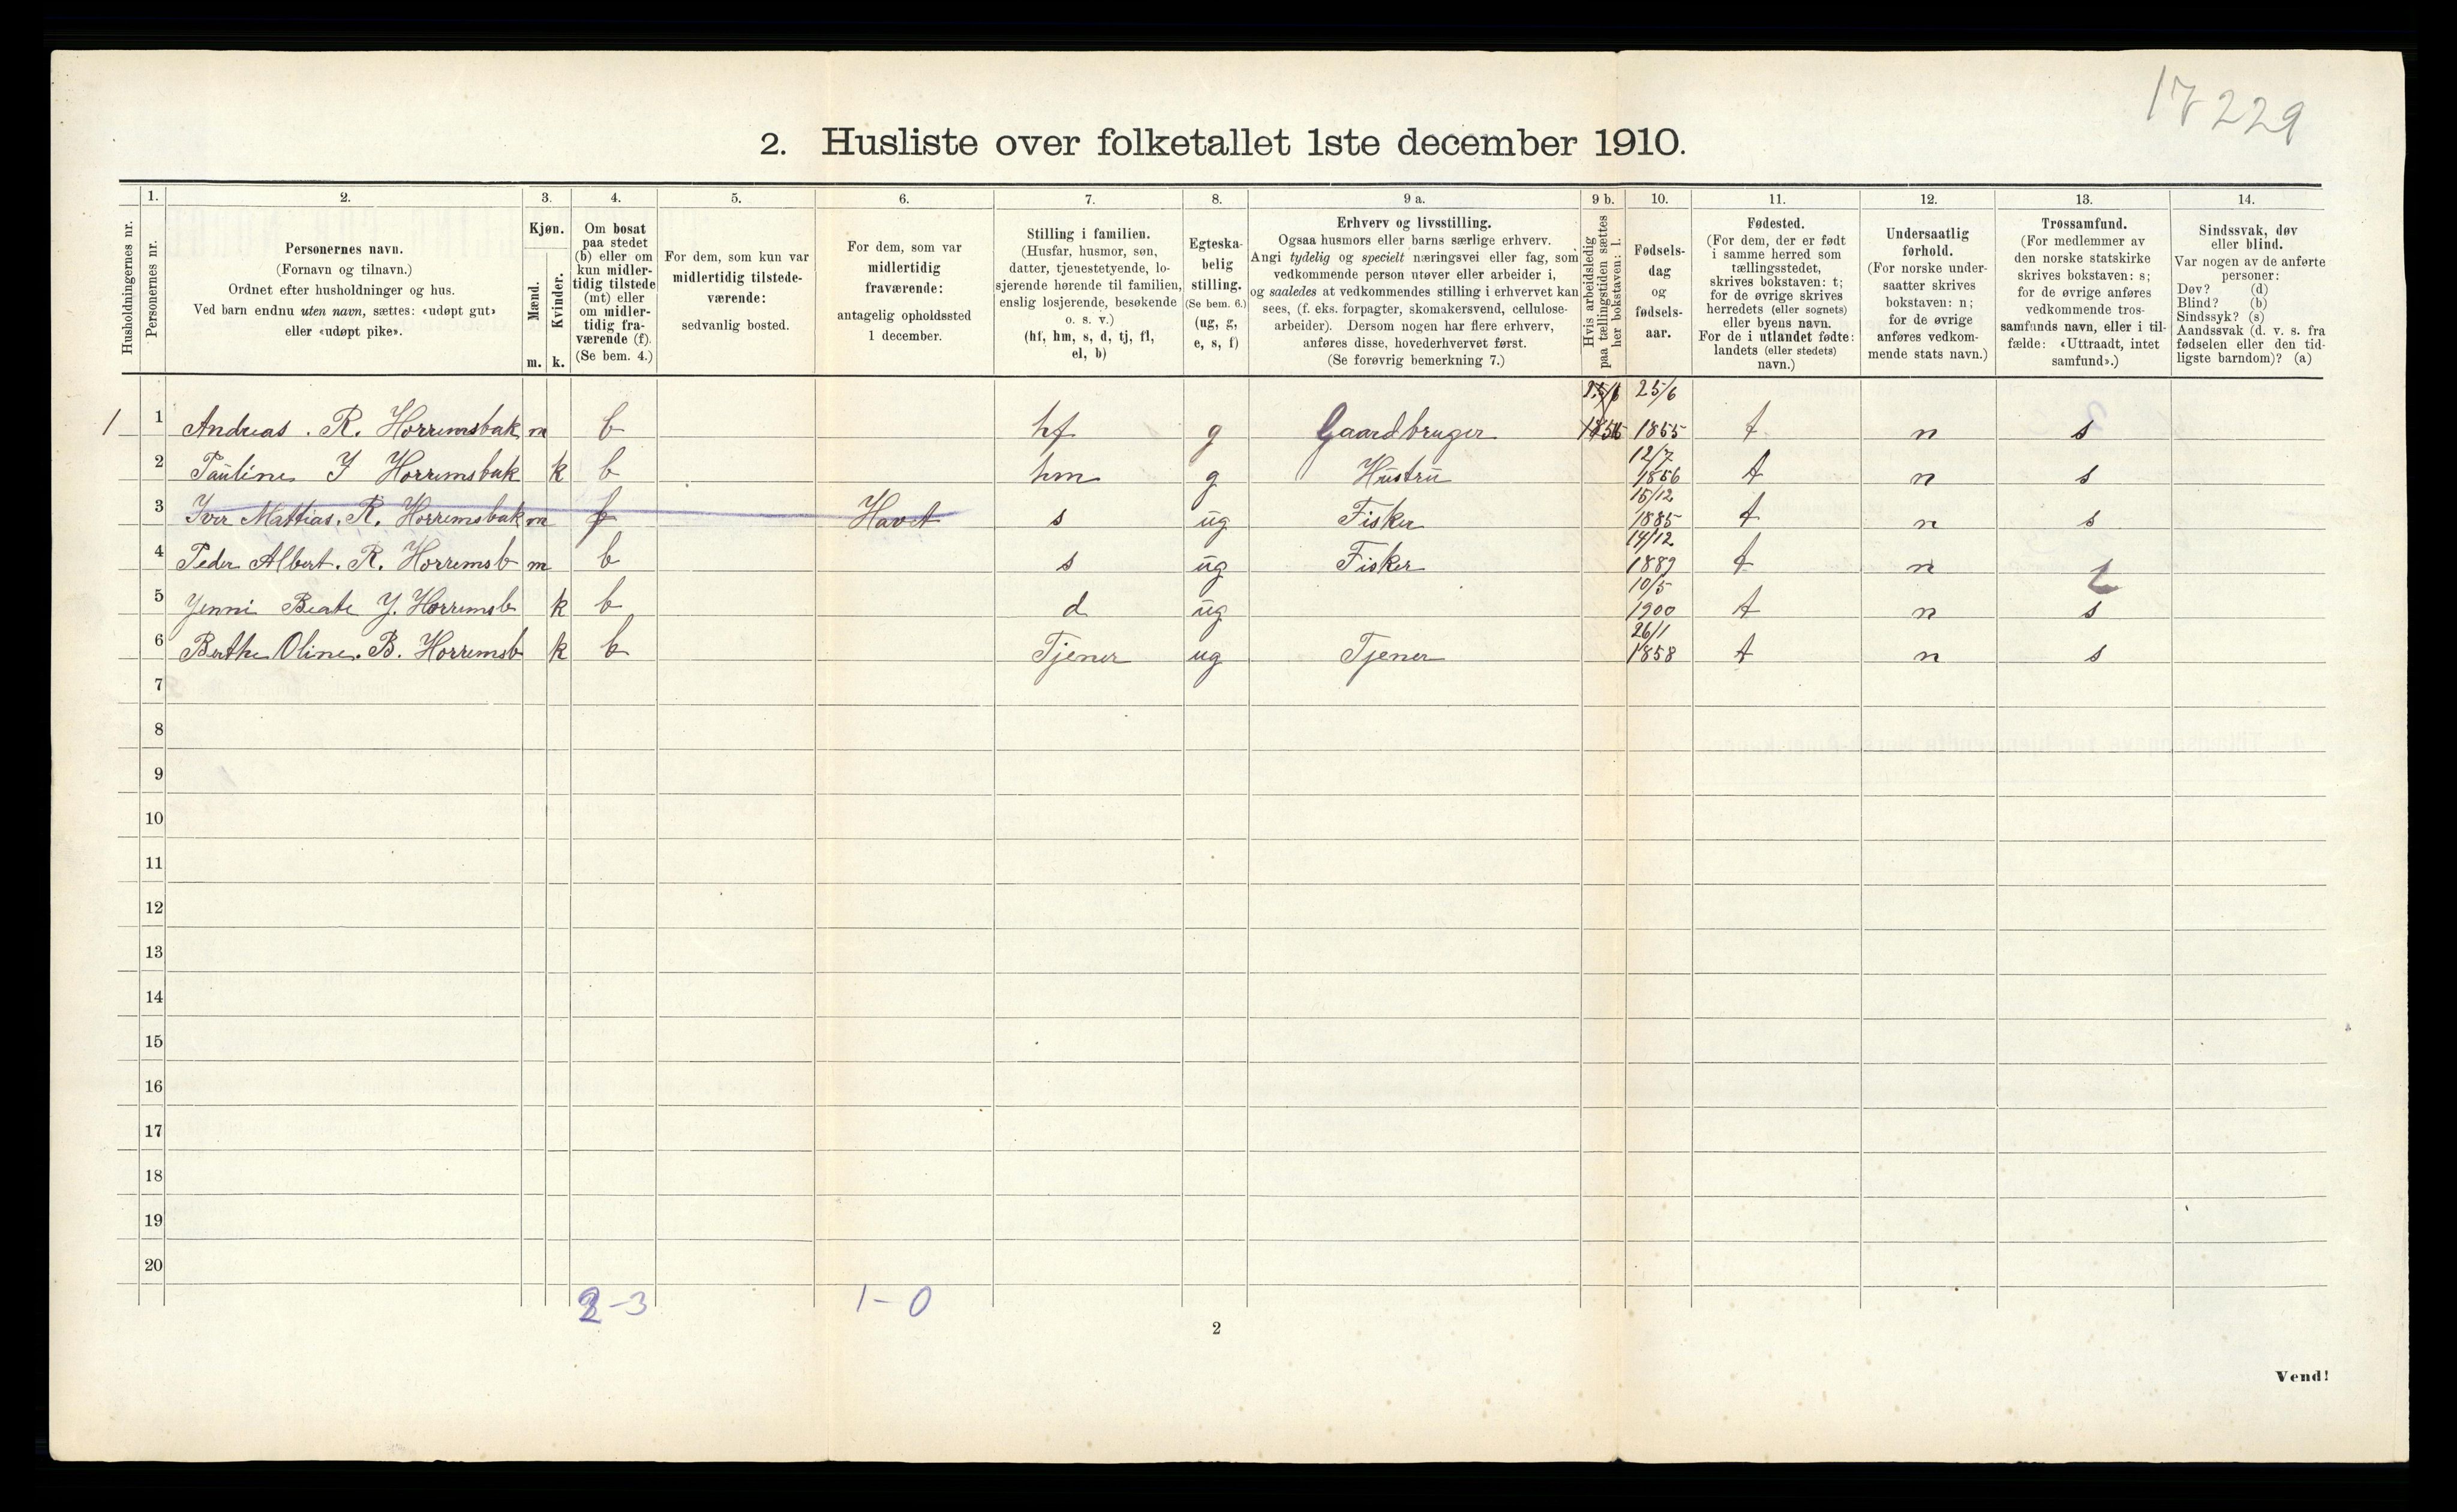 17 229
2. Husliste over folketallet 1ste december 1910.
Husholdningernes nr.
1.
Personernes nr.
2.
Personernes navn.
(Fornavn og tilnavn.)
Ordnet efter husholdninger og hus.
Ved barn endnu uten navn, sættes: «udøpt gut»
eller «udøpt pike».
3.
Kjøn.
Mænd.
Kvinder.
m. k.
4.
Om bosat
paa stedet
(b) eller om
kun midler-
tidig tilstede
(mt) eller
om midler-
tidig fra-
værende (f).
(Se bem. 4.)
5.
For dem, som kun var
midlertidig tilstede-
værende:
sedvanlig bosted.
6.
For dem, som var
midlertidig
fraværende:
antagelig opholdssted
1 december.
7.
Stilling i familien.
(Husfar, husmor, søn,
datter, tjenestetyende, lo-
sjerende hørende til familien,
enslig losjerende, besøkende
o. s. v.)
(hf, hm, s, d, tj, fl,
el, b)
8.
Egteska-
belig
stilling.
(Se bem. 6.)
(ug, g,
e, s, f)
9 a.
Erhverv og livsstilling.
Ogsaa husmors eller barns særlige erhverv.
Angi tydelig og specielt næringsvei eller fag, som
vedkommende person utøver eller arbeider i,
og saaledes at vedkommendes stilling i erhvervet kan
sees, (f. eks. forpagter, skomakersvend, cellulose-
arbeider). Dersom nogen har flere erhverv,
anføres disse, hovederhvervet først.
(Se forøvrig bemerkning 7.)
9 b.
Hvis arbeidsledig
paa tællingstiden sættes
her bokstaven: l.
10.
Fødsels-
dag
og
fødsels-
aar.
11.
Fødested.
(For dem, der er født
i samme herred som
tællingsstedet,
skrives bokstaven: t;
for de øvrige skrives
herredets (eller sognets)
eller byens navn.
For de i utlandet fødte:
landets (eller stedets)
navn.)
12.
Undersaatlig
forhold.
(For norske under-
saatter skrives
bokstaven: n;
for de øvrige
anføres vedkom-
mende stats navn.)
13.
Trossamfund.
(For medlemmer av
den norske statskirke
skrives bokstaven: s;
for de øvrige anføres
vedkommende tros-
samfunds navn, eller i til-
fælde: «Uttraadt, intet
samfund».)
14.
Sindssvak, døv
eller blind.
Var nogen av de anførte
personer:
Døv? (d)
Blind? (b)
Sindssyk? (s)
Aandssvak (d. v. s. fra
fødselen eller den tid-
ligste barndom)? (a)
25/6
1 1 Andreas . R. Horremsbak m b hf g Gaardbruger 1855 t n s
12/7
2 Pauline I Horremsbak k b hm g Hustru 1856 t n s
15/12
3 Iver Mattias. R. Horremsbak m f Havet s ug Fisker 1885 t n s
14/12
4 Peder Albert. R. Horremsb m b s ug Fisker 1889 t n
10/5
5 Jenni Beate J. Horremsb k b d ug 1900 t n s
26/1
6 Berthe Oline. B. Horremsb k b Tjener ug Tjener 1858 t n s
7
8
9
10
11
12
13
14
15
16
17
18
19
20
2-3 1-0
2
Vend!